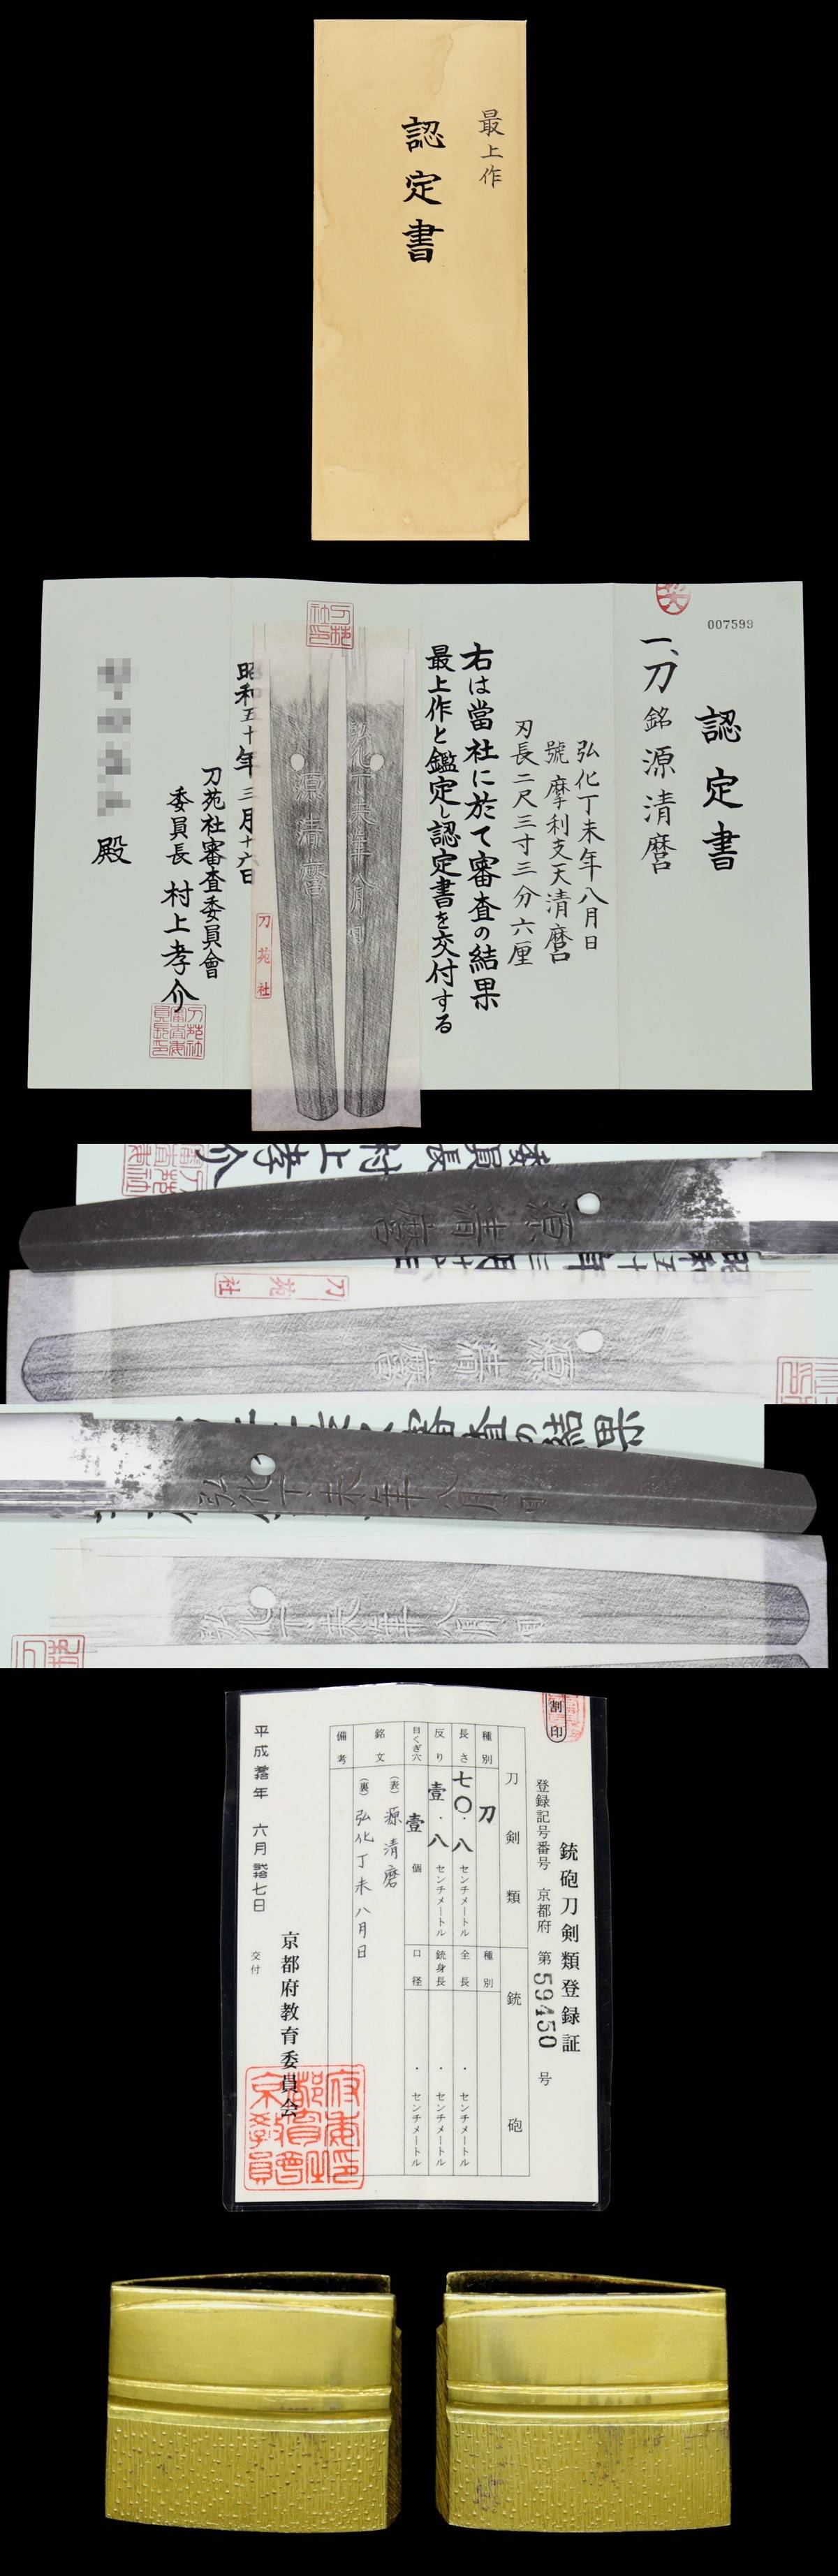 最上作
認定書
007599
認定書
一、刀 銘 源清麿
弘化丁未年八月日
號 摩利支天清麿
刃長二尺三寸三分六厘
右は當社に於て審査の結果
最上作と鑑定し認定書を交付する
弘化丁未年八月日
源清麿
刀苑社
昭和五十年三月十六日
刀苑社審査委員會
委員長 村上孝介
殿
源清麿
刀苑社
源清麿
弘化丁未年八月日
弘化丁未年八月日
割印
銃砲刀剣類登録証
登録記号番号 京都府 第59450号
刀剣類
銃砲
種別 刀
長さ 七〇.八センチメートル
反り 壹.八センチメートル
目くぎ穴 壹個
銘文 (表) 源清磨
(裏) 弘化丁未八月日
備考
種別
全長 .センチメートル
銃身長 .センチメートル
口径 .センチメートル
京都府教育委員会
交付